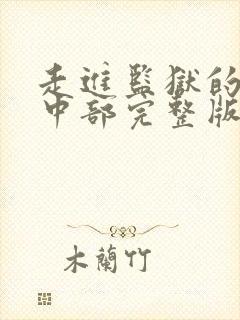 走進監獄的
中部完整版
木蘭竹